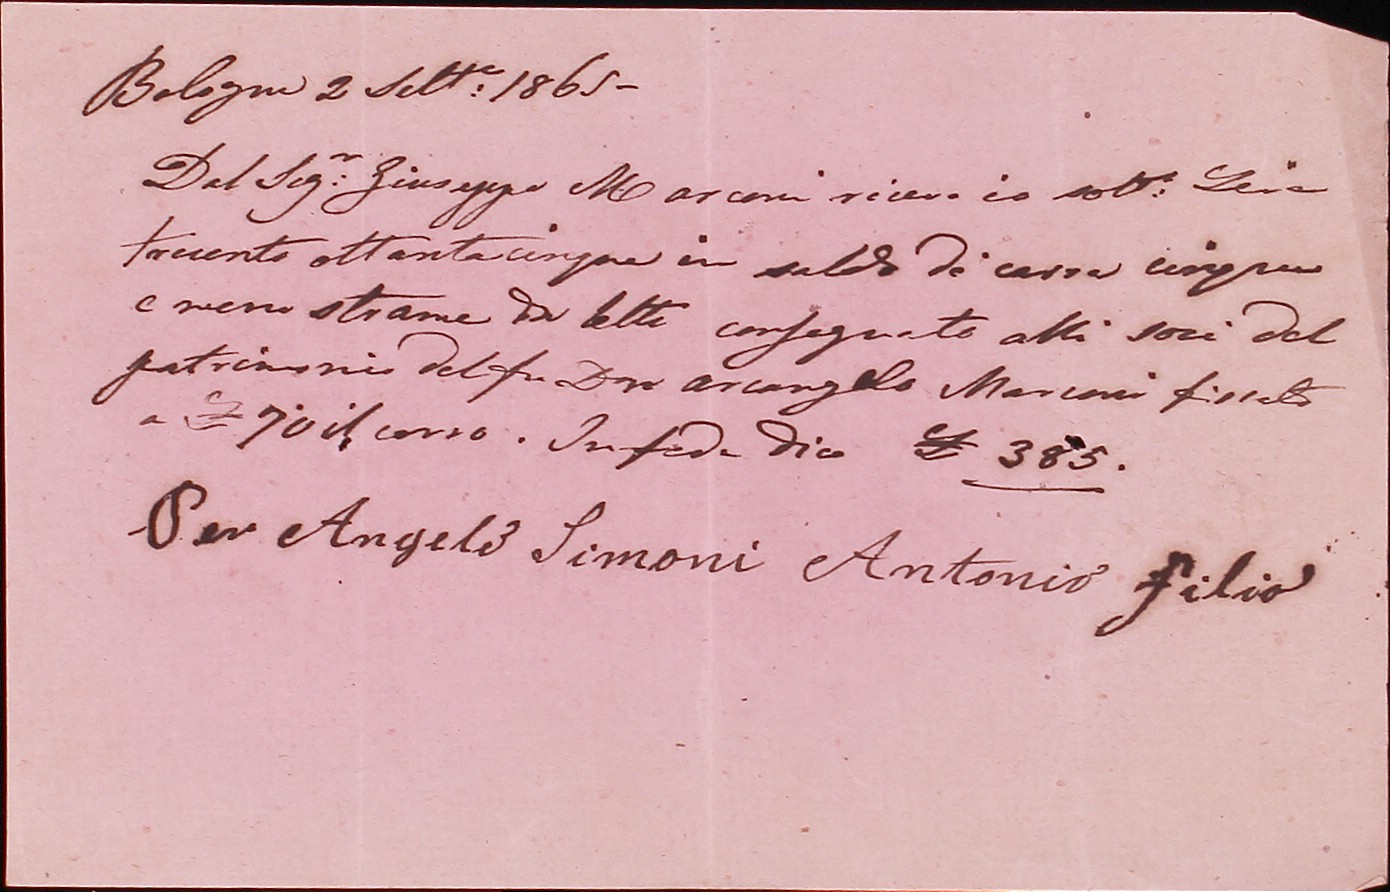 Bologna 2 Sett.e 1865-
Dal Sig.r Giuseppe Marconi ricevo io sott.o Lire
trecento ottantacinque in saldo di carra cinque
e mezzo strame da letto consegnato alli soci del
patrimonio del fu Don Arcangelo Marconi fissato
a £ 70 il carro. In fede dico £ 385.
Per Angelo Simoni Antonio Filio